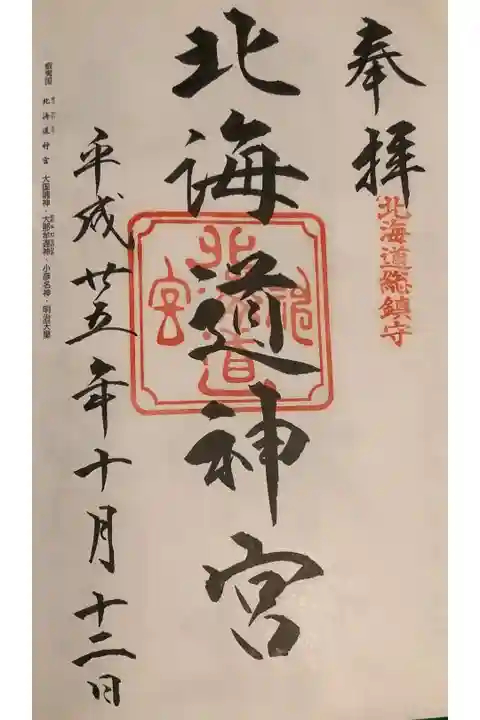 奉拝
北海道総鎮守
北海道神宮
北海道神宮
平成廿五年十月十二日
蝦夷国 北海道神宮 大国魂神・大那牟遅神・少彦名神・明治天皇